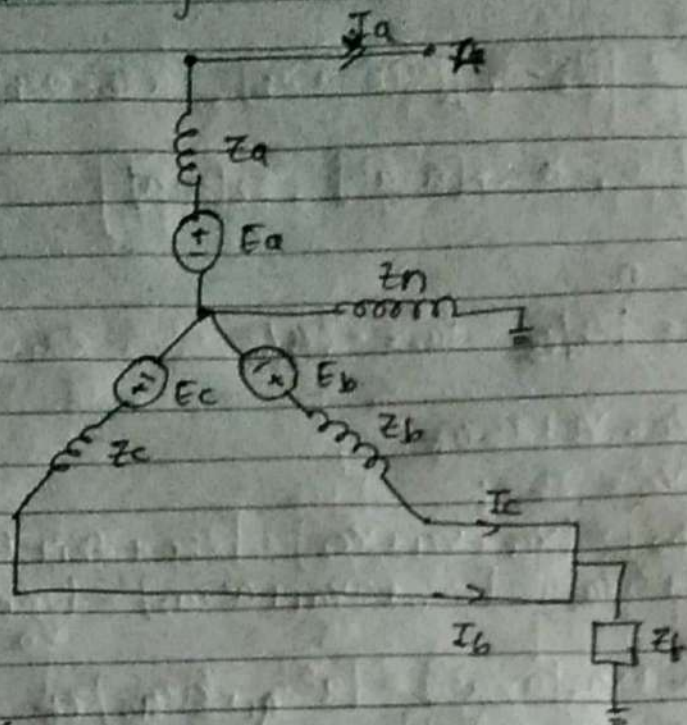 Ia
Za
+
-
Ea
Zn
Ec
Eb
Zb
Zc
Ic
Ib
Zf